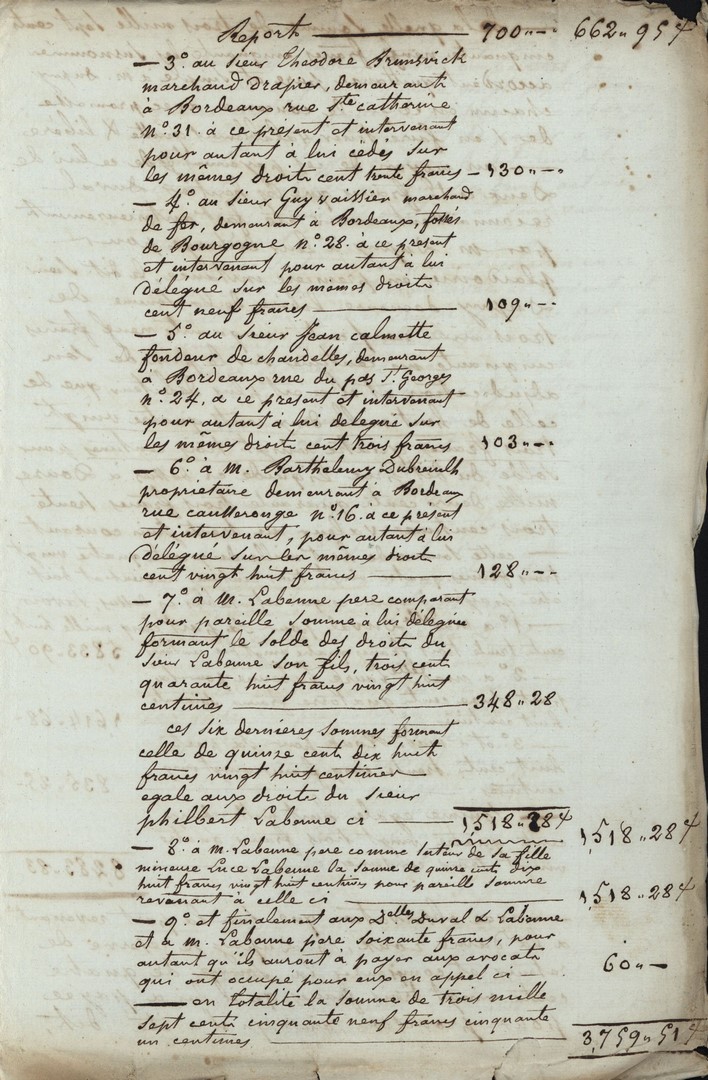 Report — 700 "-- 662 " 95 4
— 3º. au sieur Théodore Brunswick
marchand drapier, demeurant
à Bordeaux rue Ste catherine
nº. 31. à ce présent et intervenant
pour autant à lui cédés sur
les mêmes droits cent trente francs — 130 "--
— 4º. au sieur Guy vaissier marchand
de fer, demeurant à Bordeaux, fossés
de Bourgogne nº. 28. à ce présent
et intervenant pour autant à lui
délégué sur les mêmes droits
cent neuf francs — 109 "--
— 5º. au sieur Jean calmette
fondeur de chandelles, demeurant
à Bordeaux rue du pas St. Georges
nº. 24, à ce présent et intervenant
pour autant à lui délégué sur
les mêmes droits cent trois francs 103 "--
— 6º. à m. Barthelemy Dubreuilh
propriétaire demeurant à Bordeaux
rue nº. 16. à ce présent
et intervenant, pour autant à lui
délégué sur les mêmes droits
cent vingt huit francs — 128 "--
— 7º. à M. Labenne pere comparant
pour pareille somme à lui déléguée
formant le solde des droits du
sieur Labenne son fils, trois cents
quarante huit francs vingt huit
centimes — 348 " 28
ces six dernières sommes formant
celle de quinze cent dix huit
francs vingt huit centimes
egale aux droits du sieur
philbert Labenne ci — 1,518 " 28 4 1,518 " 28 4
— 8º. à m. Labenne pere comme tuteur de sa fille
mineure Luce Labenne la somme de quinze cents dix
huit francs vingt huit centimes pour pareille somme
revenant à celle ci — 1,518 " 28 4
— 9º. et finalement aux Delles. Duval & Labenne
et a m. Labenne pere soixante francs, pour
autant qu'ils auront à payer aux avocats
qui ont occupé pour eux en appel ci — 60 "—
— en totalité la somme de trois mille
sept cents cinquante neuf francs cinquante
un centimes — 3,759 " 51 4